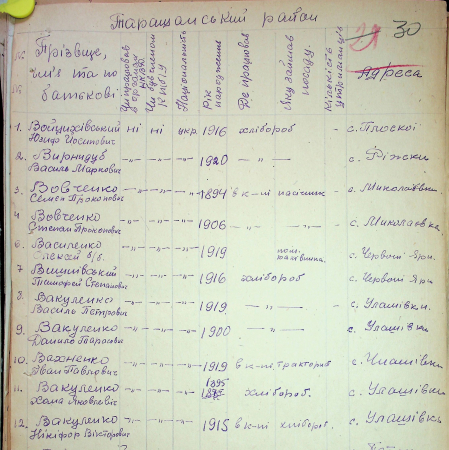 Таращанський район
30
№ Прізвище, ім'я та по батькові. Чи працював в органах НКВД Чи був членом КПбУ Національність Рік народження Де працював Яку займав посаду. Кількість утриманців Адреса
1. Войцихівський Юзиф Йосипович ні ні укр. 1916 хлібороб - с. Плоскої
2. Вирнидуб Василь Маркович -"- -"- -"- 1920 -"- с. Ріжки
3. Вовченко Семен Прокопович -"- -"- -"- 1894 в к-пі пасічник - с. Миколаївки
4 Вовченко Степан Прокопович -"- -"- -"- 1906 -"- - с. Миколаєвка
6 Василенко Олексій -"- -"- -"- 1919 с. Червоні Яри.
7 Вишнівський Тимофей Степанович -"- -"- -"- 1916 хлібороб с. Червоні Яри
8. Вакуленко Василь Петрович -"- -"- -"- 1919 -"- с. Улашівки.
9. Вакуленко Данило Тарасови -"- -"- -"- 1900 -"- с. Улашівки
10. Вахненко Іван Павлович -"- -"- -"- 1919 в к-пі, тракторист - с. Улашівки
11. Вакуленко Яковлевіч -"- -"- -"- 1895 хлібороб. - с. Улашівки
12. Вакуленко Нікіфор Вікторович -"- -"- -"- 1915 в к-пі хлібороб. - с. Улашівки